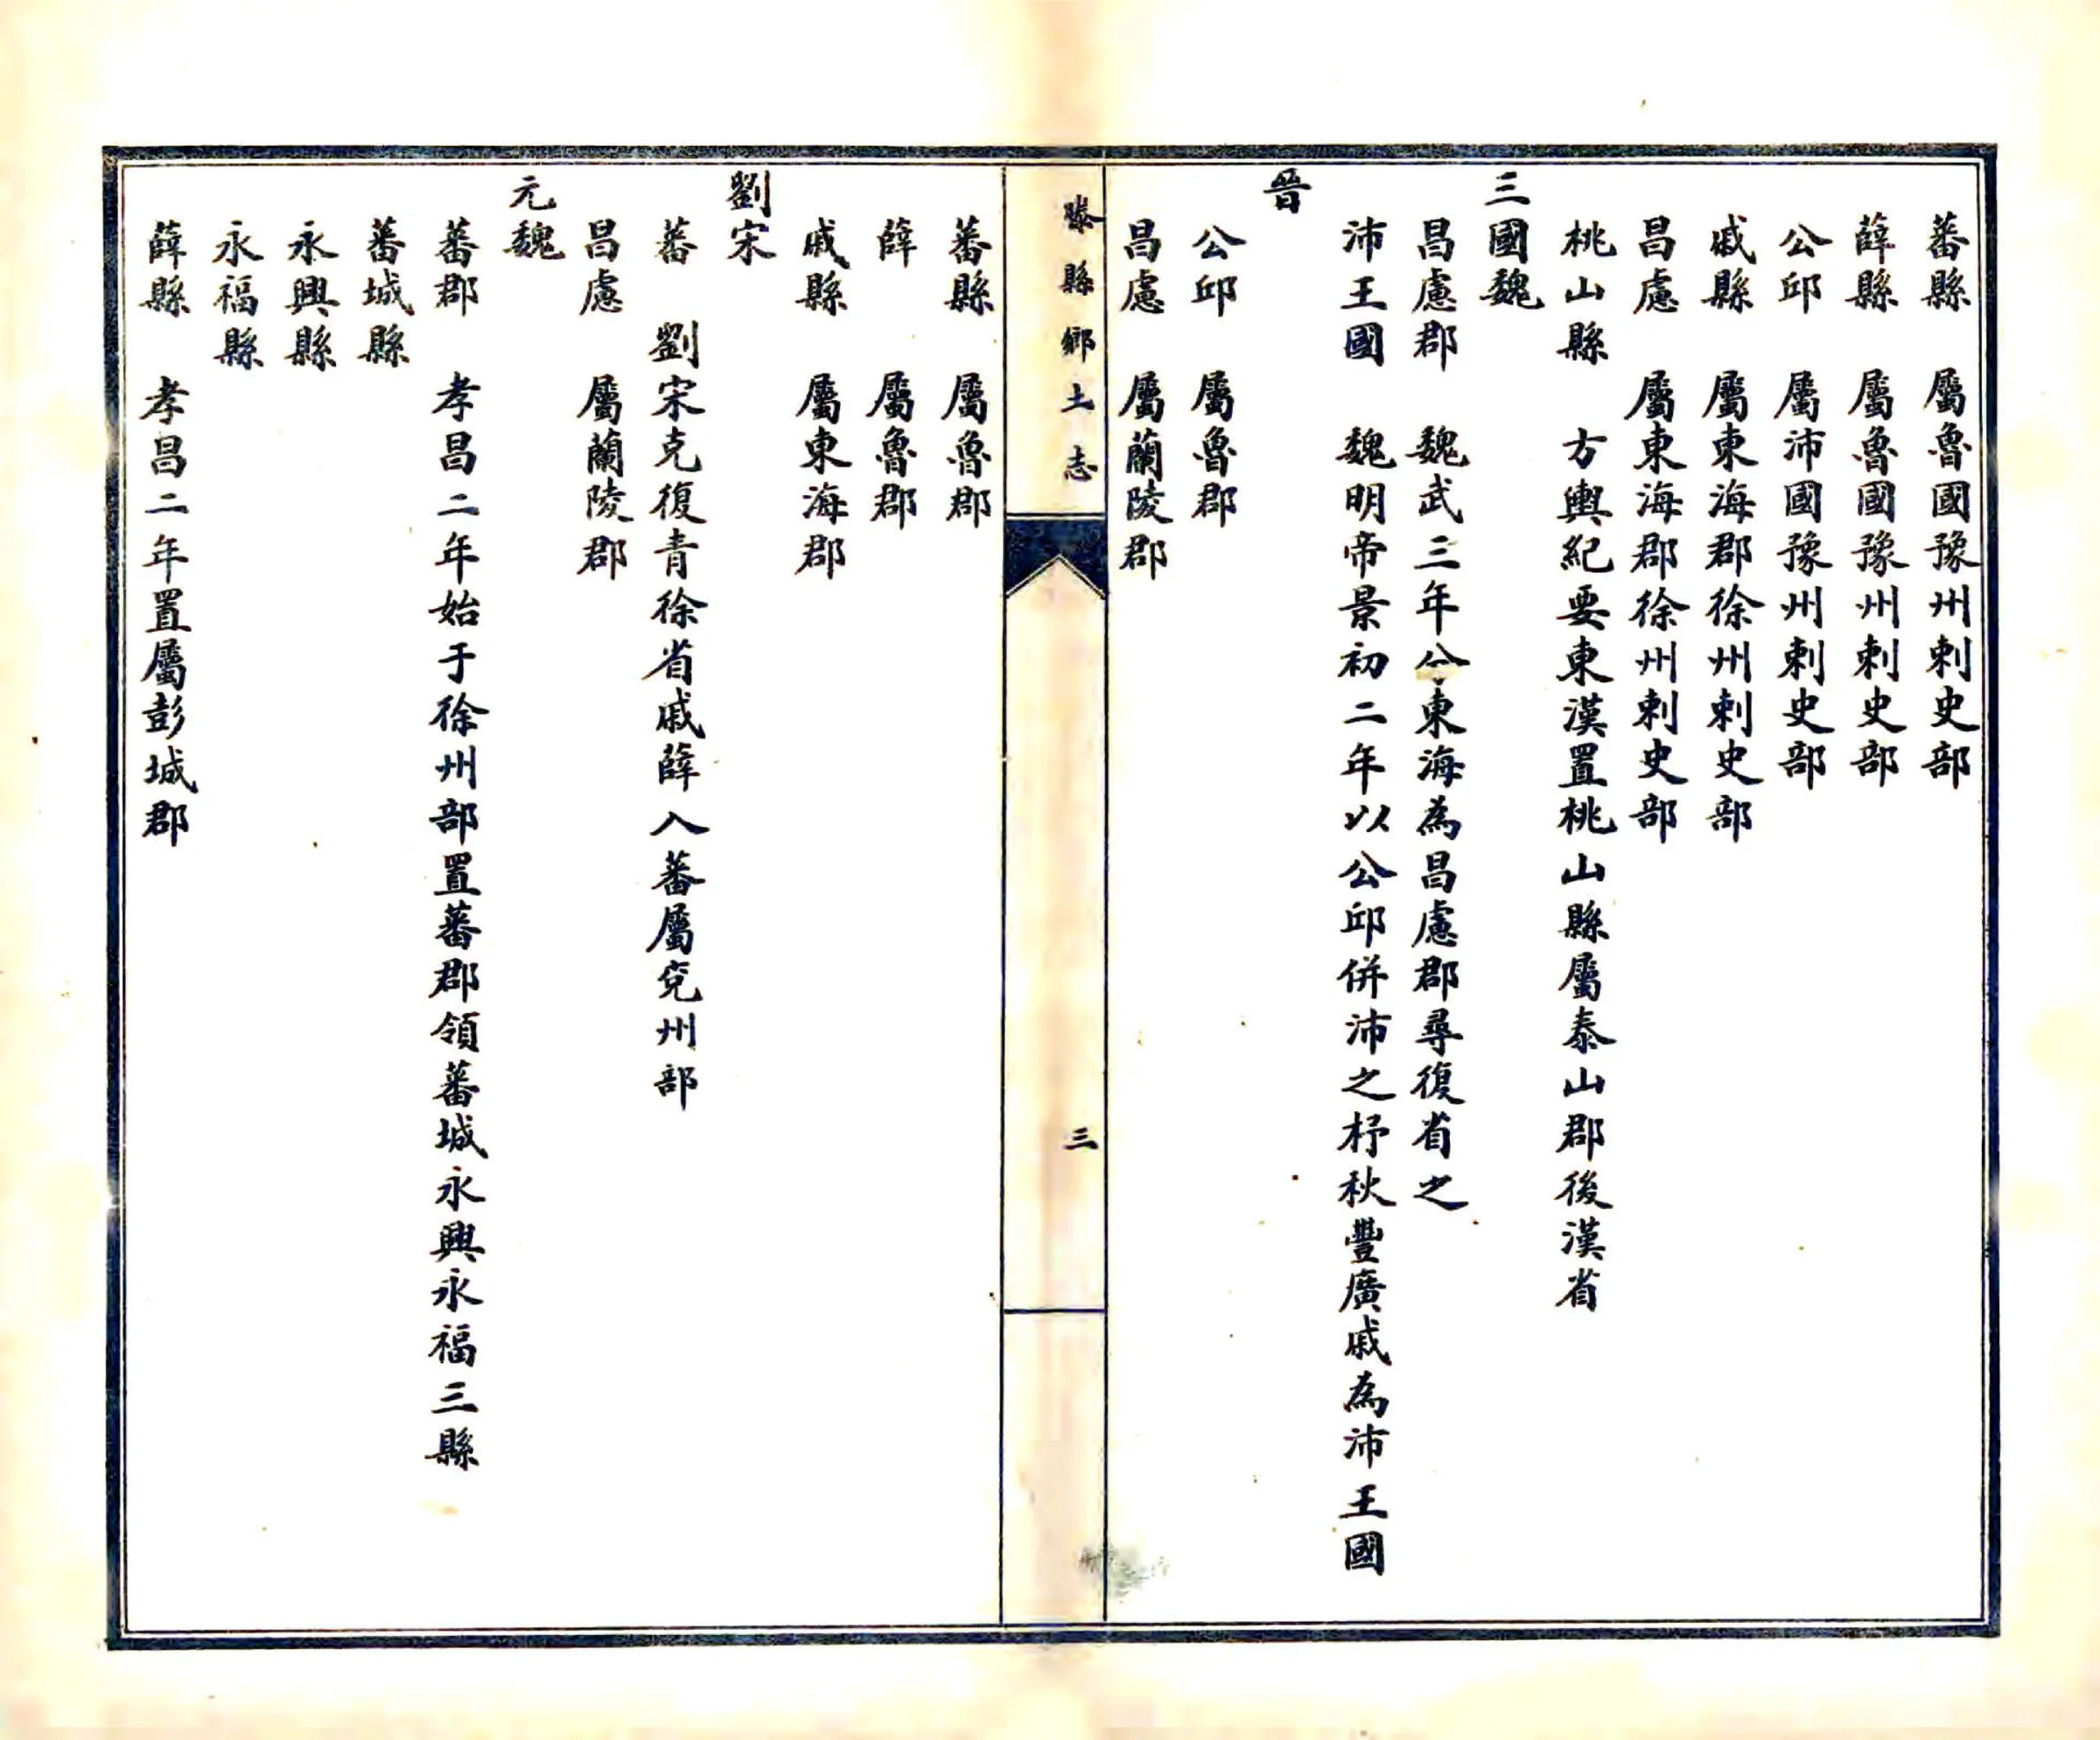 蕃縣　屬魯國豫州刺史部
薛縣　屬魯國豫州刺史部
公邱　屬沛國豫州刺史部
戚縣　屬東海郡徐州刺史部
昌慮　屬東海郡徐州刺史部
桃山縣　方輿紀要東漢置桃山縣屬泰山郡後漢省
三國魏
昌慮郡　魏武三年分東海為昌慮郡尋復省之
沛王國　魏明帝景初二年以公邱併沛之杼秋豐廣戚為沛王國
晉
公邱　屬魯郡
昌慮　屬蘭陵郡
滕縣鄉土志
三
蕃縣　屬魯郡
薛　屬魯郡
戚縣　屬東海郡
劉宋
蕃　劉宋克復青徐省戚薛入蕃屬兗州部
昌慮　屬蘭陵郡
元魏
蕃郡　孝昌二年始于徐州部置蕃郡領蕃城永興永福三縣
蕃城縣
永興縣
永福縣
薛縣　孝昌二年置屬彭城郡